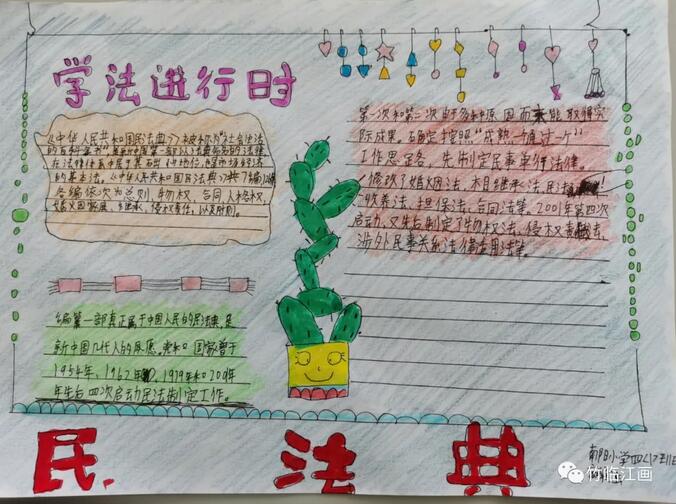 学法进行时
《中华人民共和国民法典》被称为"社会生活
的百科全书"
在法律体系中居于基础性地位,也是市场经济
的基本法。《中华人民共和国民法典》共7编,
各编依次为总则、物权、合同、人格权、
婚姻家庭、继承、侵权责任,以及附则。
编纂一部真正属于中国人民的民法典,是
新中国几代人的夙愿。党和国家曾于
1954年、1962年、1979年和2001年
先后四次启动民法制定工作。
第一次和第二次,由于多种原因而未能取得实
际成果。确定按照"成熟一个通过一个"
工作思路,先制定民事单行法律。
修改了婚姻法,
收养法、担保法、合同法等。2001年第四次
启动,又先后制定了物权法、侵权责任法、
涉外民事关系法律适用法等。
民法典
竹临江画